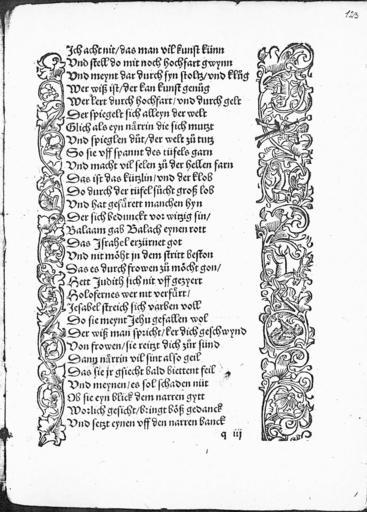 123
Jch acht nit/das man vil kunst künn
Vnd stell do mit noch hochfart gwynn
Vnd meynt dar durch syn stoltz/vnd klüg
Wer wiß ist/der kan kunst genüg
Wer kert durch hochfart/vnd durch gelt
Der spiegelt sich alleyn der welt
Glich als eyn närrin die sich mutzt
Vnd spieglen düt/der welt zů tutz
So sie vff spannt des tüfels garn
Vnd macht vil selen zů der hellen farn
Das ist das kützlin/vnd der klob
Do durch der tüfel sücht groß lob
Vnd hat gefürt manchen hyn
Der sich bedunckt vor witzig sin/
Balaam gab Balach eynen rott
Das Jsrahel erzürnet got
Vnd nit möht jn dem stritt beston
Das es durch frowen zů möcht gon/
Hett Judith sich nit vff gezyert
Holofernes wer nit verfürt/
Jesabel streich sich varben voll
So sie meynt Jehu gefallen wol
Der wiß man spricht/ker dich geschwynd
Von frowen/sie reitzt dich zůr sünd
Dann närrin vil sint also geil
Das sie jr gsiecht bald biettent feil
Vnd meynen/es sol schaden nüt
Ob sie eyn blick dem narren gytt
Worlich gesicht/bringt böß gedanck
Vnd setzt eynen vff den narren banck
q iij